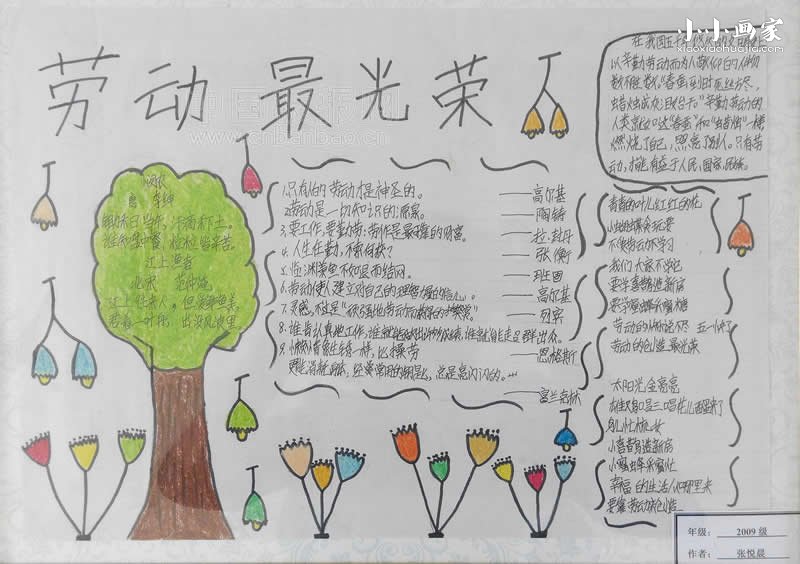 小小画家
xiaoxiaohuajia.com
劳动最光荣
在我国五千
以辛勤劳动而为人敬仰的人物
数不胜数。"春蚕到死丝方尽，
蜡烛成灰泪始干。"辛勤劳动的
人类就如这"春蚕"和"蜡烛"一样
燃烧了自己，照亮了别人。只有劳
动，才能有益于人民，国家，民族。
悯农
唐 李绅
锄禾日当午，汗滴禾下土。
谁知盘中餐，粒粒皆辛苦。
江上渔者
北宋 范仲淹
江上往来人，但爱鲈鱼美。
君看一叶舟，出没风波里。
1.只有人的劳动才是神圣的。
——高尔基
2.劳动是一切知识的源泉。
——陶铸
3.要工作，要勤劳：劳作是最可靠的财富。
——拉·封丹
4.人生在勤，不索何获？
——张衡
5.临渊羡鱼不如退而结网。
——班固
6.劳动使人建立对自己的理智力量的信心。
——高尔基
7.灵感，不过是"顽强地劳动而获得的奖赏"。
——列宾
8.谁肯认真地工作，谁就能做出许多成绩，谁就能超群出众。
——恩格斯
9.懒惰像生锈一样，比操劳
更能消耗身体，经常用的钥匙，总是亮闪闪的。
——富兰克林
青青的叶儿红红的花
小蝴蝶贪玩耍
不爱劳动不学习
我们大家不学它
要学喜鹊造新房
要学蜜蜂采蜜糖
劳动的快乐说不尽
劳动的创造最光荣
太阳光金亮亮
雄鸡唱三唱花儿醒来了
鸟儿忙梳妆
小喜鹊造新房
小蜜蜂采蜜忙
幸福的生活从哪里来
要靠劳动来创造
年级： 2009级
作者： 张悦晨